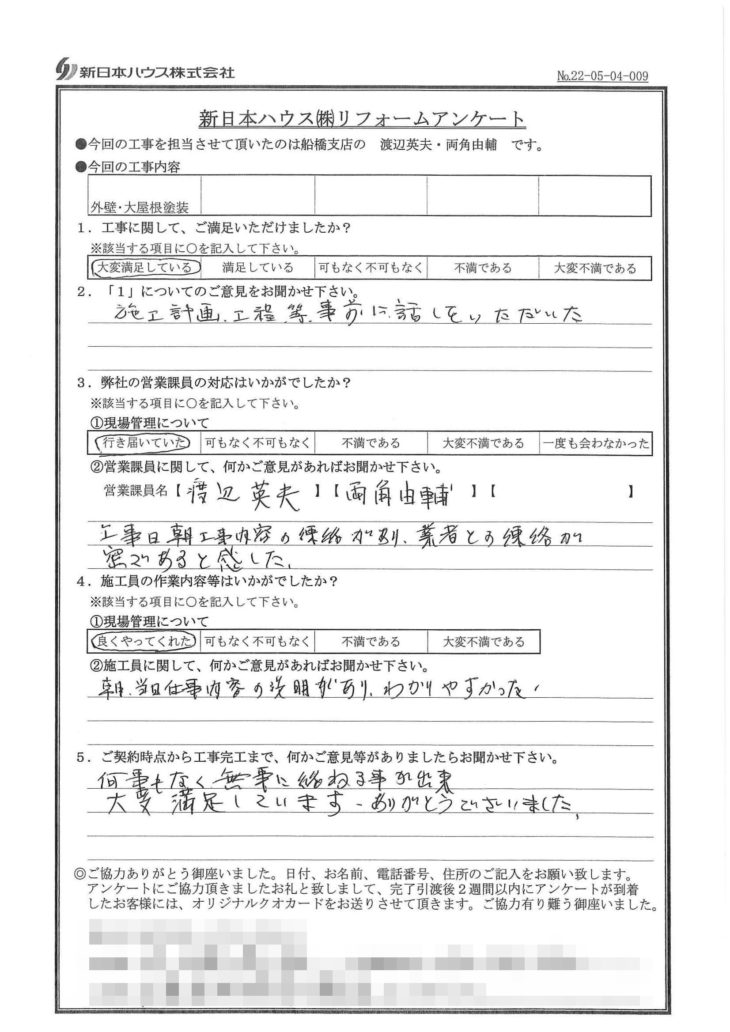 新日本ハウス株式会社
№22-05-04-009
新日本ハウス㈱リフォームアンケート
●今回の工事を担当させて頂いたのは船橋支店の 渡辺英夫・両角由輔 です。
●今回の工事内容
外壁・大屋根塗装
1．工事に関して、ご満足いただけましたか？
※該当する項目に○を記入して下さい。
大変満足している 満足している 可もなく不可もなく 不満である 大変不満である
2．「1」についてのご意見をお聞かせ下さい。
施工計画、工程、等、事前に話しをいただいた
3．弊社の営業課員の対応はいかがでしたか？
※該当する項目に○を記入して下さい。
①現場管理について
行き届いていた 可もなく不可もなく 不満である 大変不満である 一度も会わなかった
②営業課員に関して、何かご意見があればお聞かせ下さい。
営業課員名【渡辺英夫】【両角由輔】【 】
工事日朝工事内容の連絡があり、業者との連絡が
密であると感した、
4．施工員の作業内容等はいかがでしたか？
※該当する項目に○を記入して下さい。
①現場管理について
良くやってくれた 可もなく不可もなく 不満である 大変不満である
②施工員に関して、何かご意見があればお聞かせ下さい。
朝、当日仕事内容の説明があり、わかりやすかった、
5．ご契約時点から工事完工まで、何かご意見等がありましたらお聞かせ下さい。
何事もなく無事に終わる事が出来
大変満足しています。ありがとうございました、
◎ご協力ありがとう御座いました。日付、お名前、電話番号、住所のご記入をお願い致します。
アンケートにご協力頂きましたお礼と致しまして、完了引渡後２週間以内にアンケートが到着
したお客様には、オリジナルクオカードをお送りさせて頂きます。ご協力有り難う御座いました。